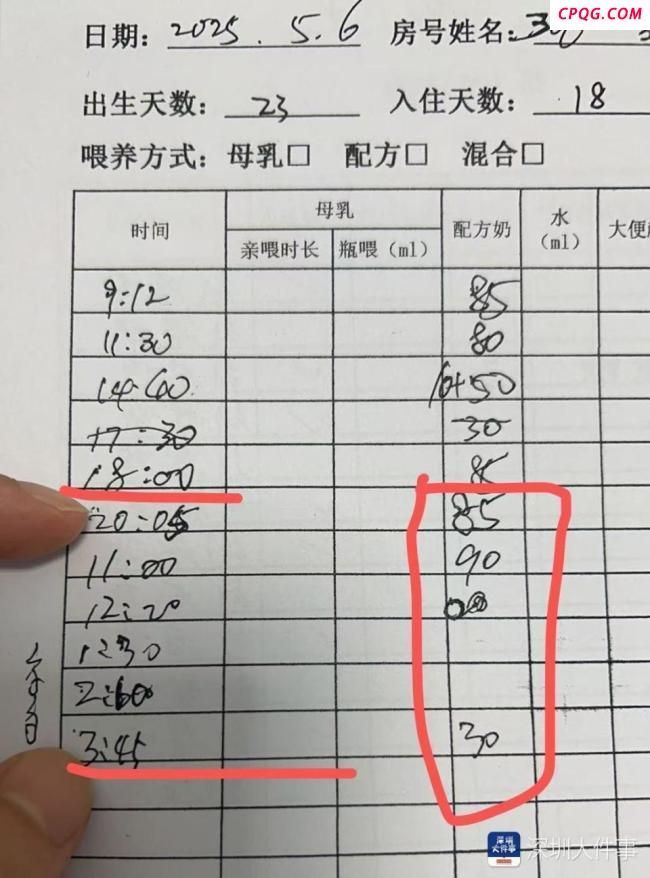 CPQG.COM
日期: 2025.5.6 房号姓名:
出生天数: 23 入住天数: 18
喂养方式: 母乳□ 配方□ 混合□
时间 母乳 配方奶 水(ml) 大便
亲喂时长 瓶喂(ml)
9:12 85
11:30 80
14:00 50
17:30 30
18:00 85
20:05 85
11:00 90
12:20
1230
2:00
3:45 30
深圳大件事 深圳大件事